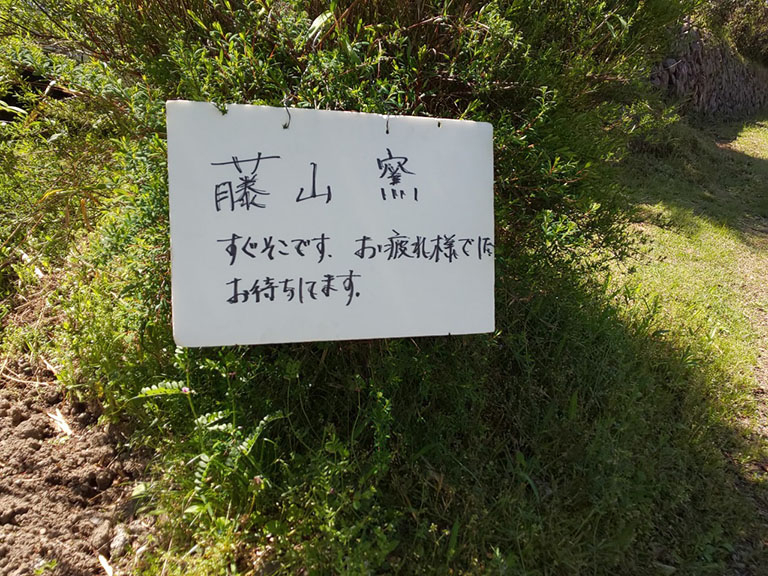 藤山窯
すぐそこです、お疲れ様でした
お待ちしてます。